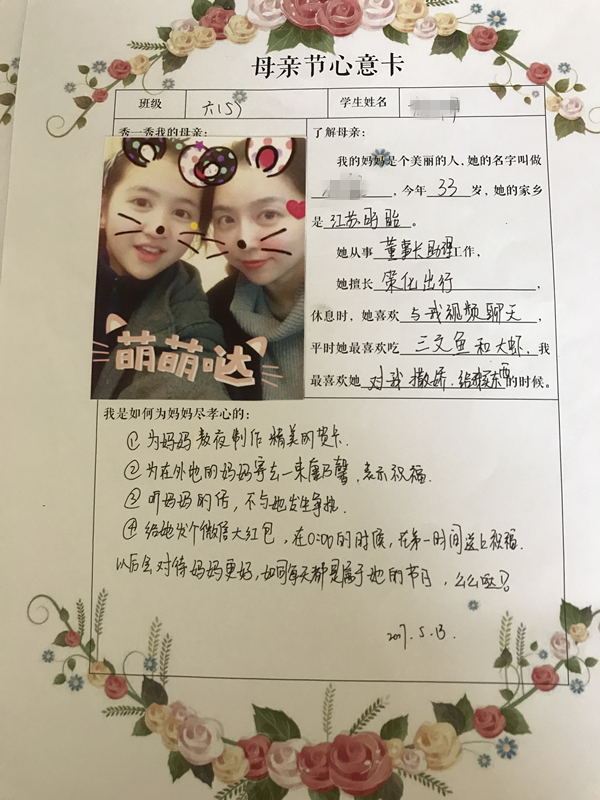 母亲节心意卡
班级 六(5) 学生姓名
秀一秀我的母亲:
了解母亲:
我的妈妈是个美丽的人,她的名字叫做
,今年 33 岁,她的家乡
是 江苏盱眙 。
她从事 董事长助理 工作,
她擅长 策化出行 ,
休息时,她喜欢 与我视频聊天 ,
平时她最喜欢吃 三文鱼和大虾 ,我
最喜欢她 对我撒娇、给我买东西 的时候。
萌萌哒
我是如何为妈妈尽孝心的:
①为妈妈熬夜制作精美的贺卡.
②为在外地的妈妈寄去一束康乃馨,表示祝福.
③听妈妈的话,不与她发生争执.
④给她发个微信大红包,在0:00的时候,在第一时间送上祝福.
以后会对待妈妈更好,如同每天都是属于她的节日,么么哒!
2017.5.13.